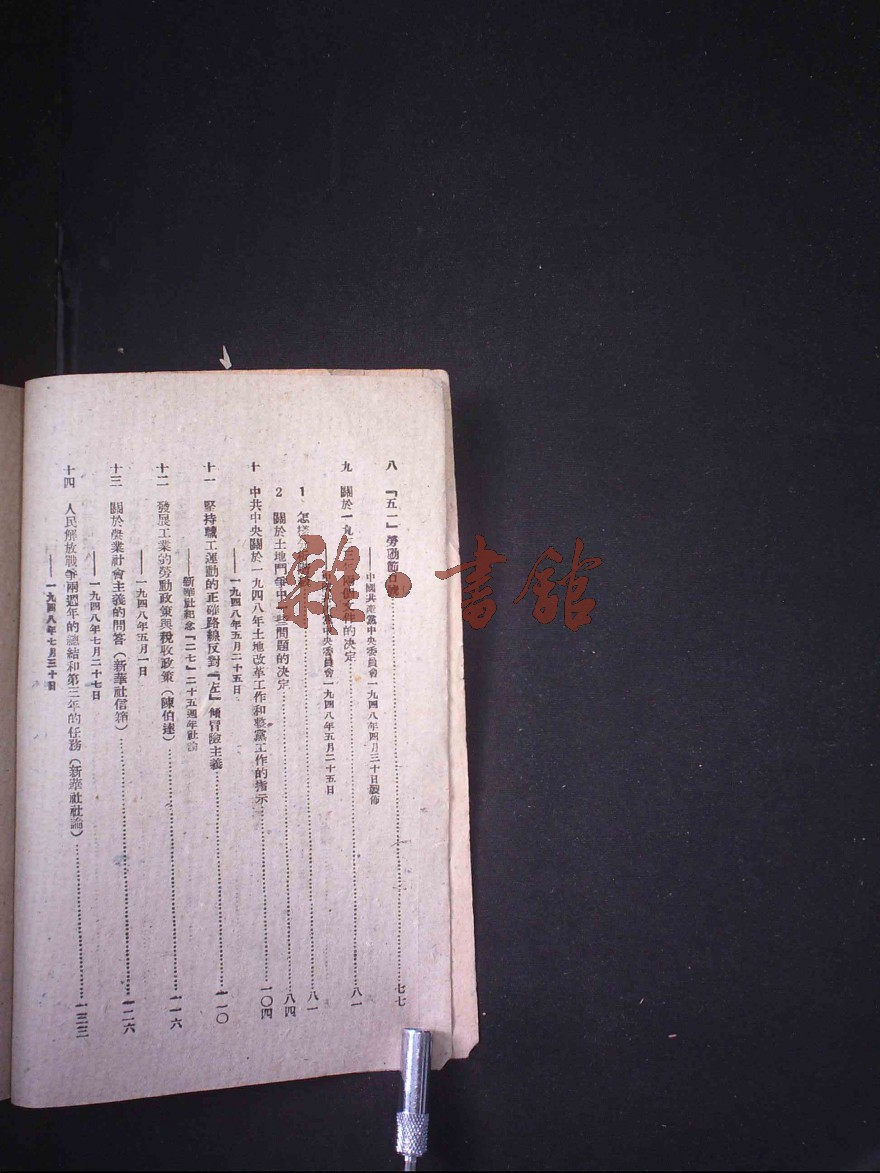 八 「五一」勞動節口號………七七
——中國共產黨中央委員會一九四八年四月三十日發佈
九 關於一九三三年兩個文件的決定………八一
——中國共產黨中央委員會一九四八年五月二十五日
1、怎樣………八一
2 關於土地鬥爭中一些問題的決定………八四
十 中共中央關於一九四八年土地改革工作和整黨工作的指示………一〇四
——一九四八年五月二十五日
十一 堅持職工運動的正確路線反對「左」傾冒險主義………一一〇
——新華社紀念「二七」二十五週年社論
十二 發展工業的勞動政策與稅收政策（陳伯達）………一一六
——一九四八年五月一日
十三 關於農業社會主義的問答（新華社信箱）………一二六
——一九四八年七月二十七日
十四 人民解放戰爭兩週年的總結和第三年的任務（新華社社論）………一三三
——一九四八年七月三十日
雜·書館